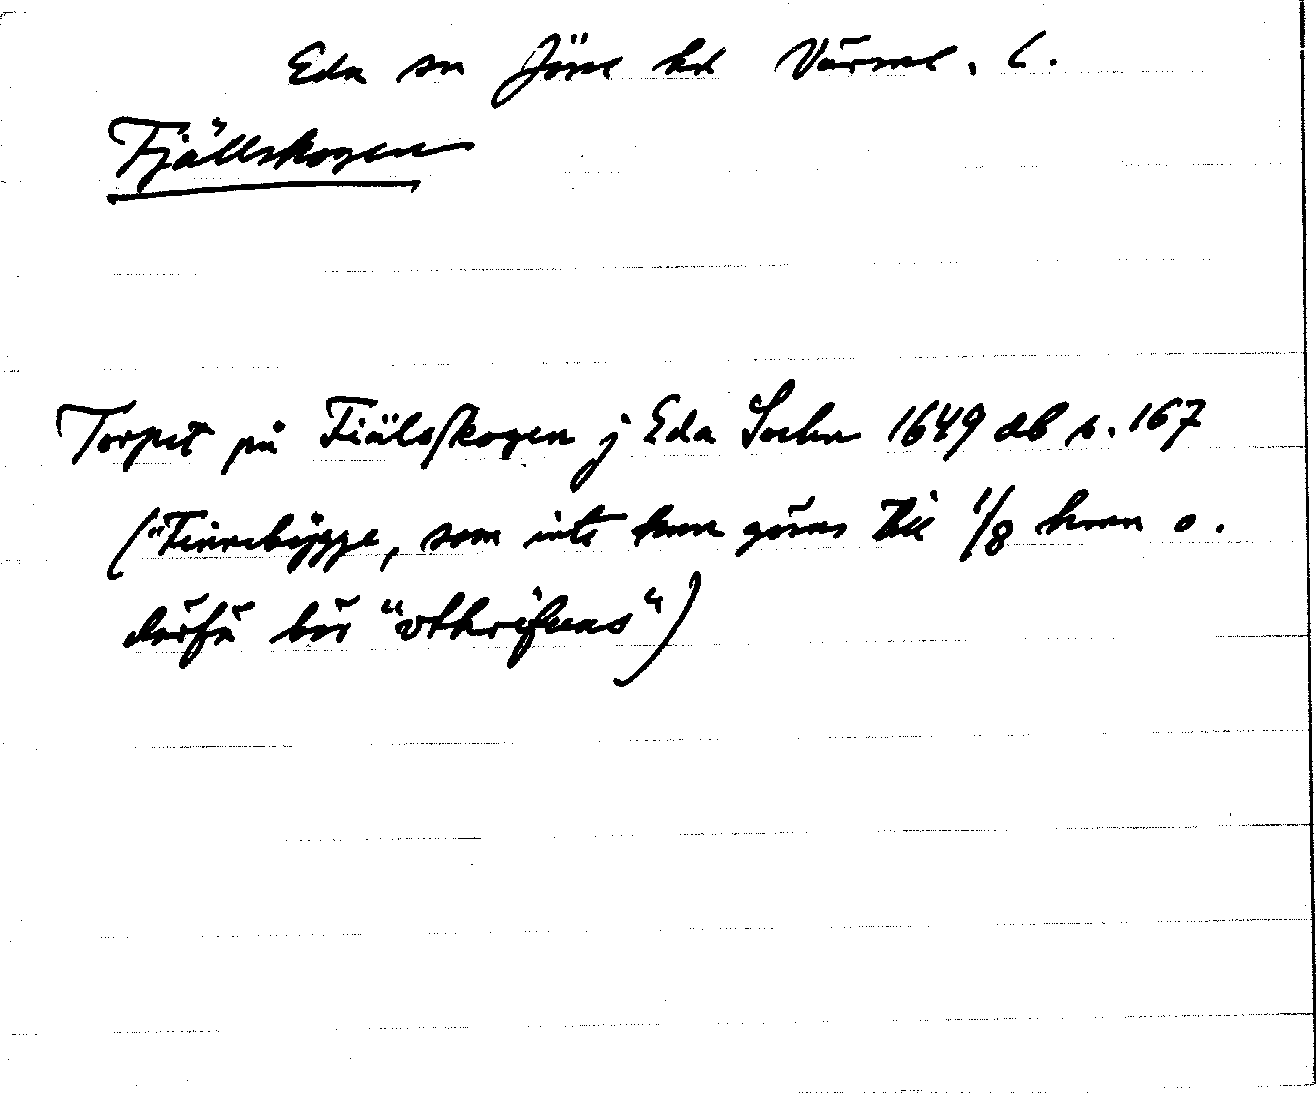 Eda sn Jöse hd Värml. l.
Fjällskogen
Torpet på Fiälsskogen j Eda Sochn 1649 db s. 167
("Finnebygge, som inte kan göras till 1/8 hmn o.
därför bör "vthrifuas")